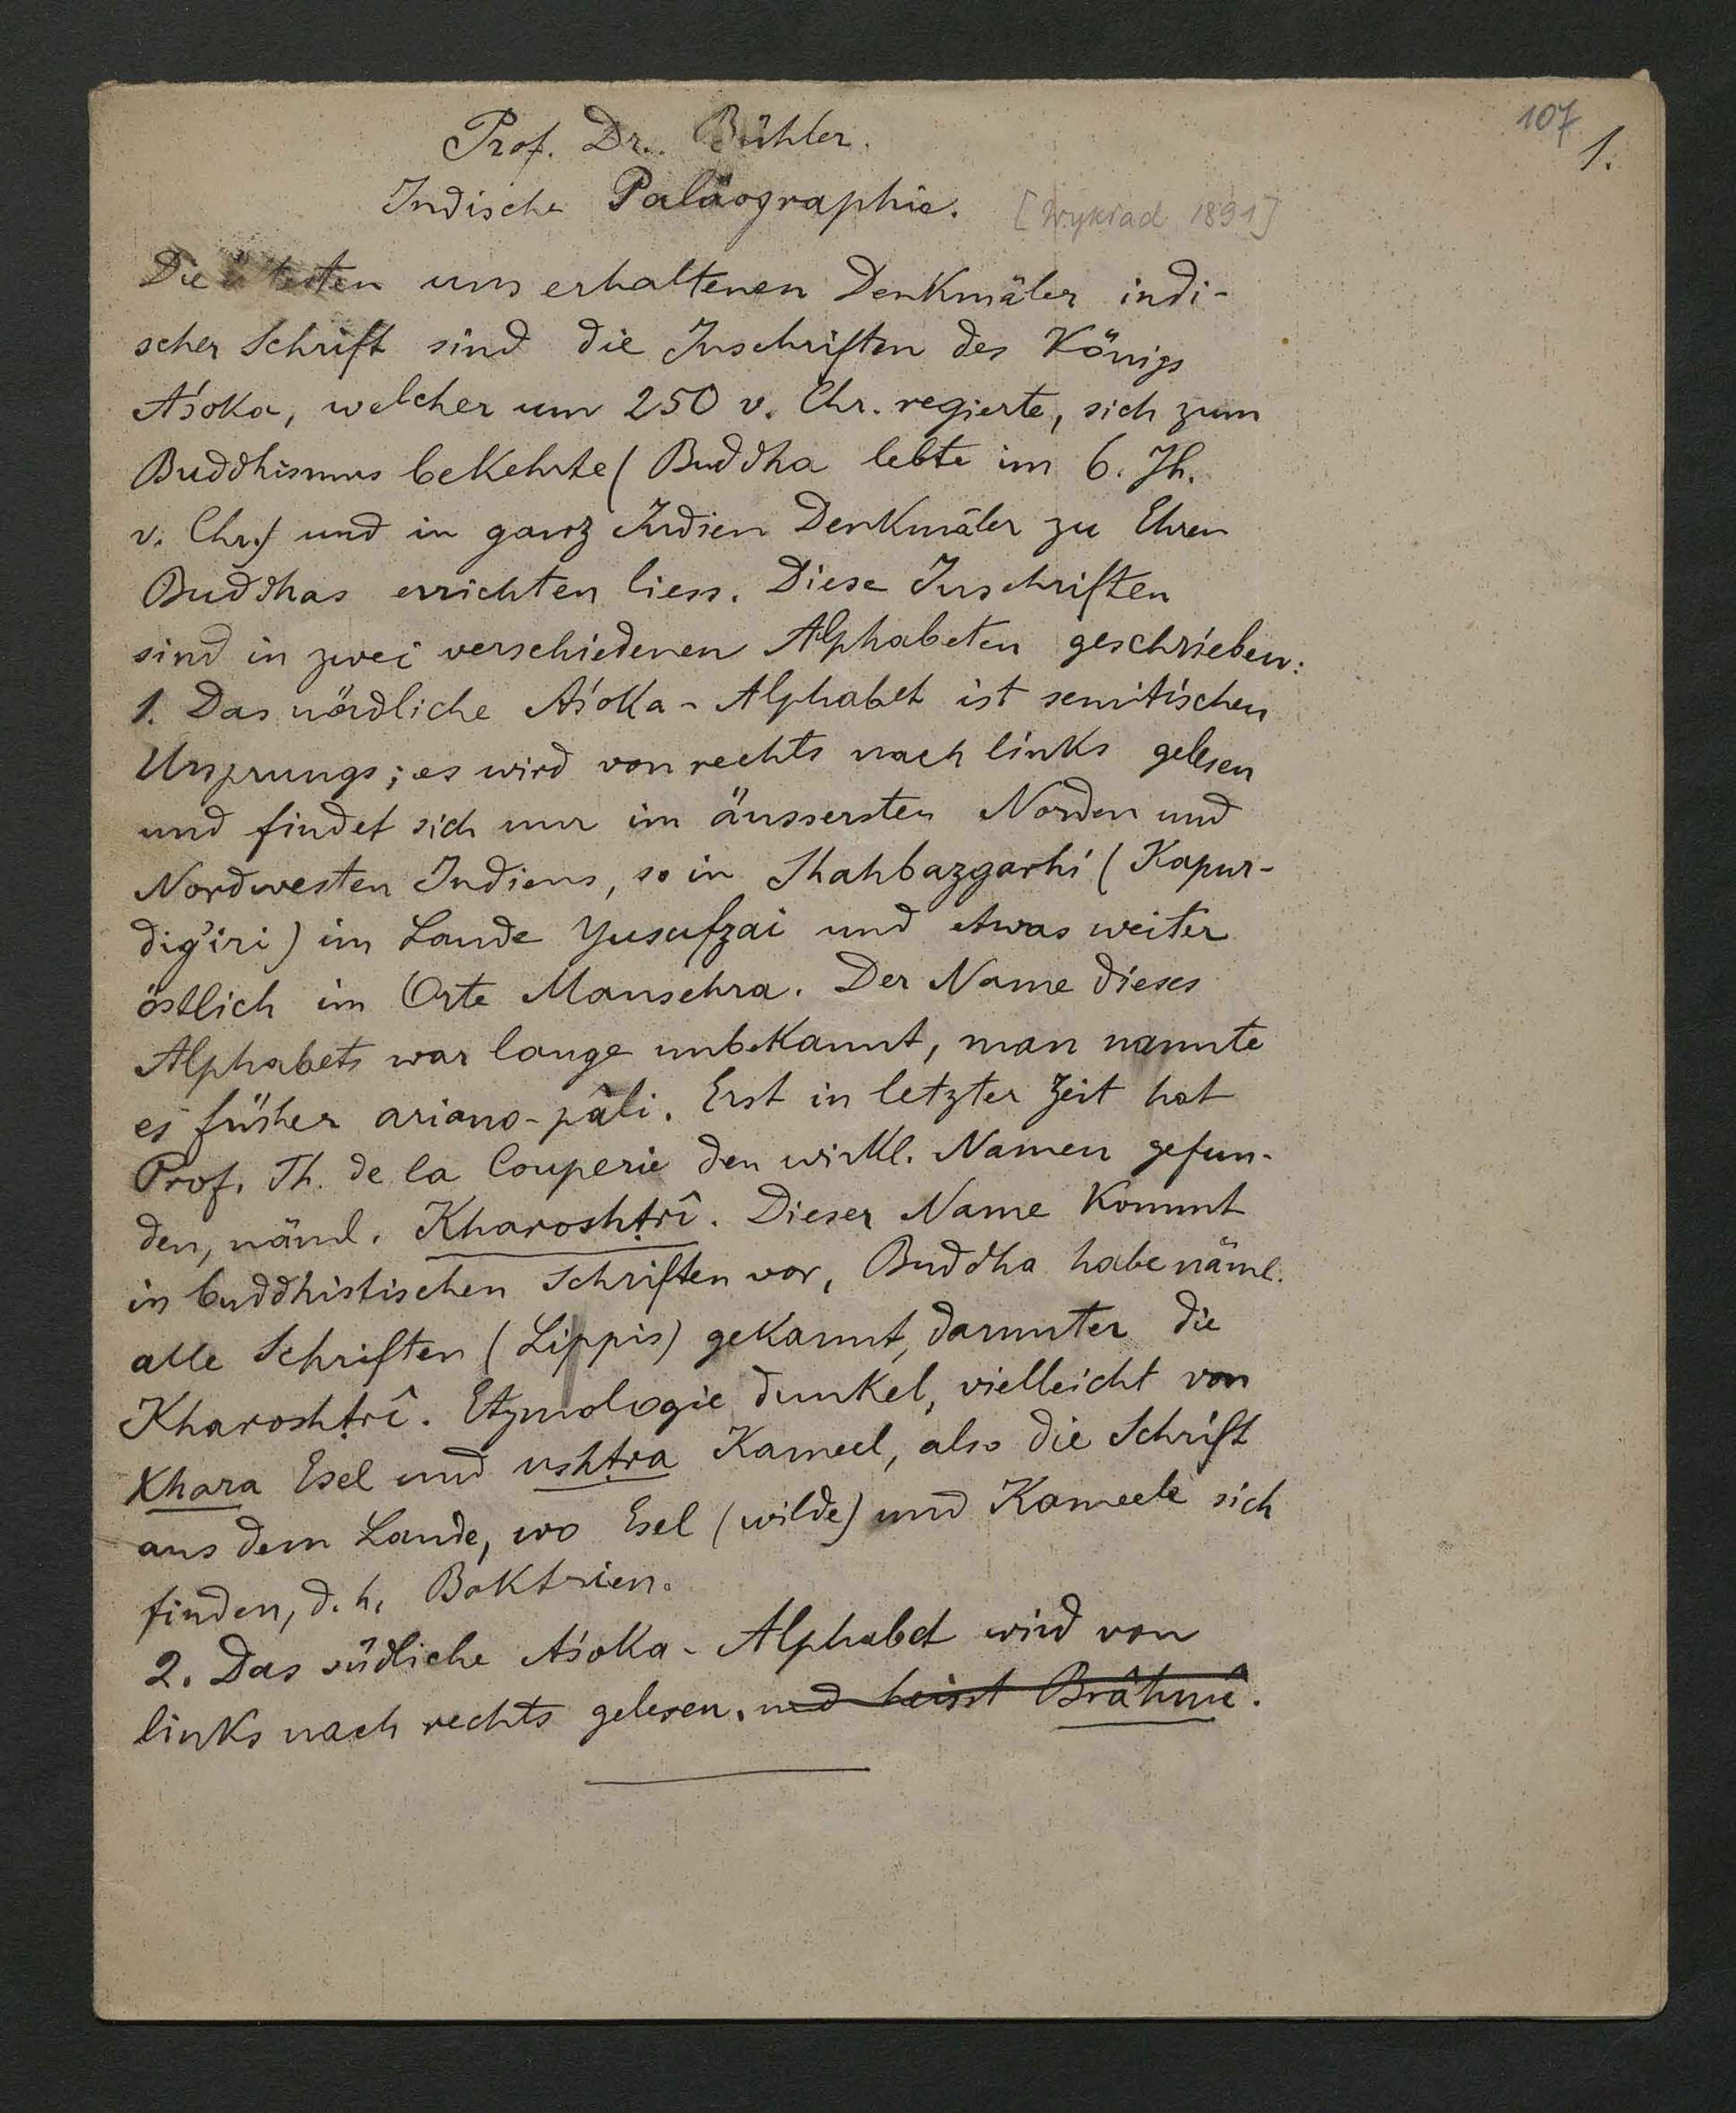 107
1.
Prof. Dr. Bühler.
Indische Paläographie. [Wykład 1891]
Die ältesten uns erhaltenen Denkmäler indi-
scher Schrift sind die Inschriften des Königs
Aśoka, welcher um 250 v. Chr. regierte, sich zum
Buddhismus bekehrte (Buddha lebte im 6. Jh.
v. Chr.) und in ganz Indien Denkmäler zu Ehren
Buddhas errichten liess. Diese Inschriften
sind in zwei verschiedenen Alphabeten geschrieben:
1. Das nördliche Aśoka-Alphabet ist semitischen
Ursprungs; es wird von rechts nach links gelesen
und findet sich nur im äussersten Norden und
Nordwesten Indiens, so in Shahbazgarhi (Kapur-
dig'iri) im Lande Yusufzai und etwas weiter
östlich im Orte Mansehra. Der Name dieses
Alphabets war lange unbekannt, man nannte
es früher ariano-pâli. Erst in letzter Zeit hat
Prof. Th. de la Couperie den wirkl. Namen gefun-
den, näml. Kharoshṭrî. Dieser Name kommt
in buddhistischen Schriften vor, Buddha habe näml.
alle Schriften (Lippis) gekannt, darunter die
Kharoshṭrî. Etymologie dunkel, vielleicht von
Khara Esel und ushṭra Kameel, also die Schrift
aus dem Lande, wo Esel (wilde) und Kameele sich
finden, d. h. Baktrien.
2. Das südliche Aśoka-Alphabet wird von
links nach rechts gelesen. und heisst Brâhmî.